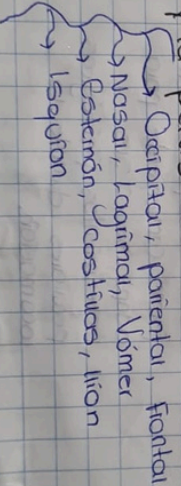 Occipital, parientar, Frontal
Nasal, Lagrimal, Vómer
Estemón, costillas, liion
Isquion